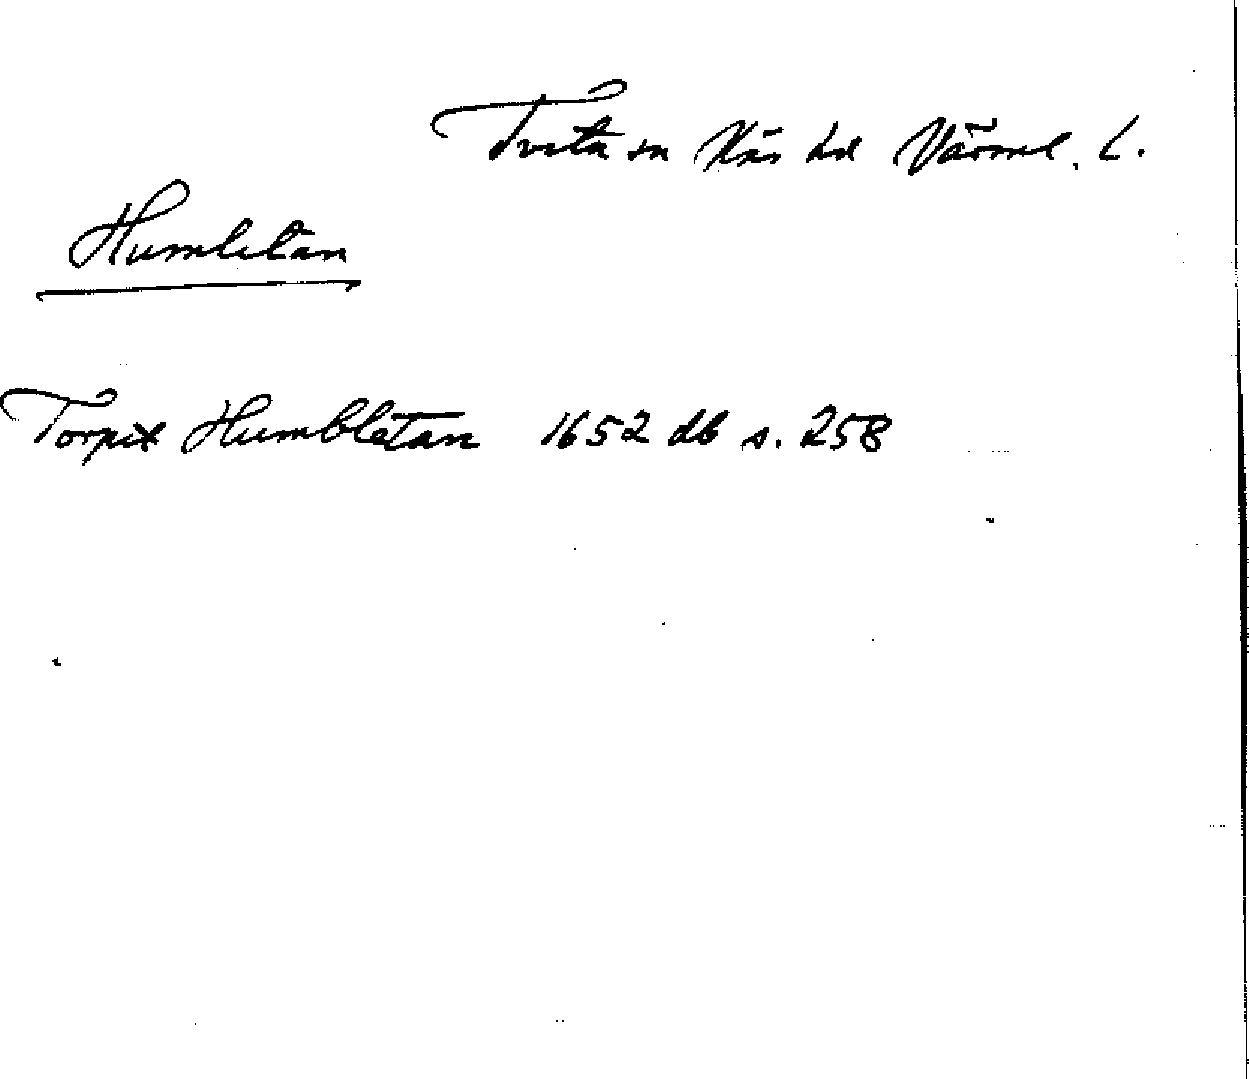 Tveta sn Näs hd Värml. L.
Humletan
Torpit Humbletan 1652 db s. 258